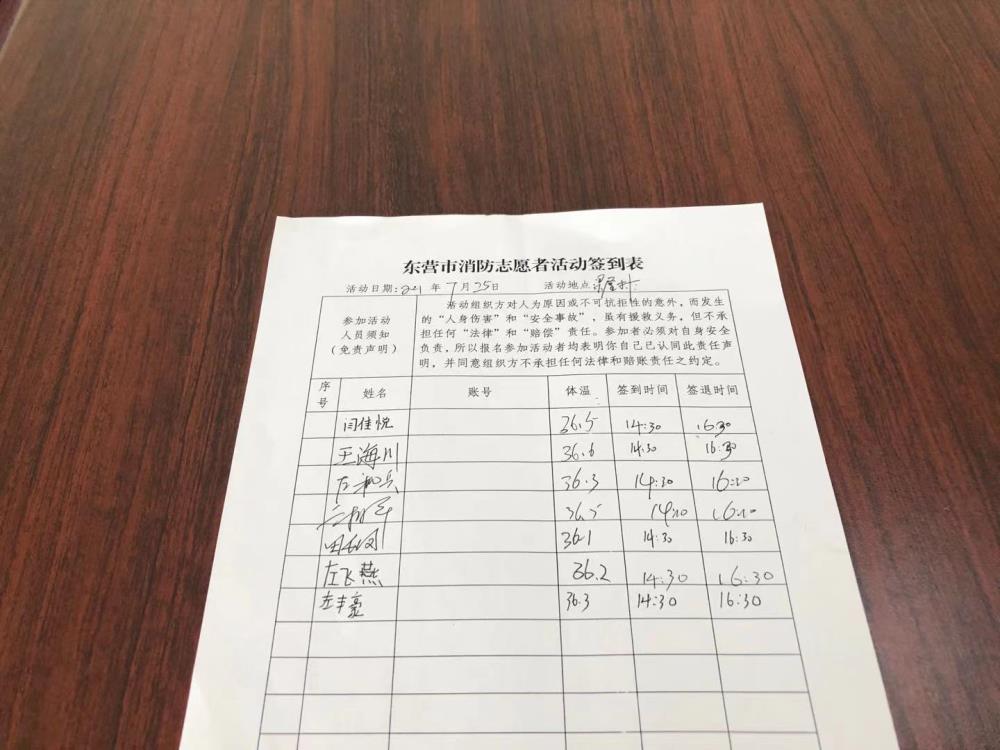 东营市消防志愿者活动签到表
活动日期:21 年 7 月 25 日 活动地点
参加活动
人员须知
(免责声明)
活动组织方对人为原因或不可抗拒性的意外,而发生
的“人身伤害”和“安全事故”,虽有援救义务,但不承
担任何“法律”和“赔偿”责任。参加者必须对自身安全
负责,所以报名参加活动者均表明你自己已认同此责任声
明,并同意组织方不承担任何法律和赔账责任之约定。
序号 姓名 账号 体温 签到时间 签退时间
闫佳悦 36.5 14:30 16:30
王海川 36.6 14:30 16:30
36.3 14:30 16:30
36.5
36.1 14:30 16:30
左飞燕 36.2 14:30 16:30
左丰豪 36.3 14:30 16:30